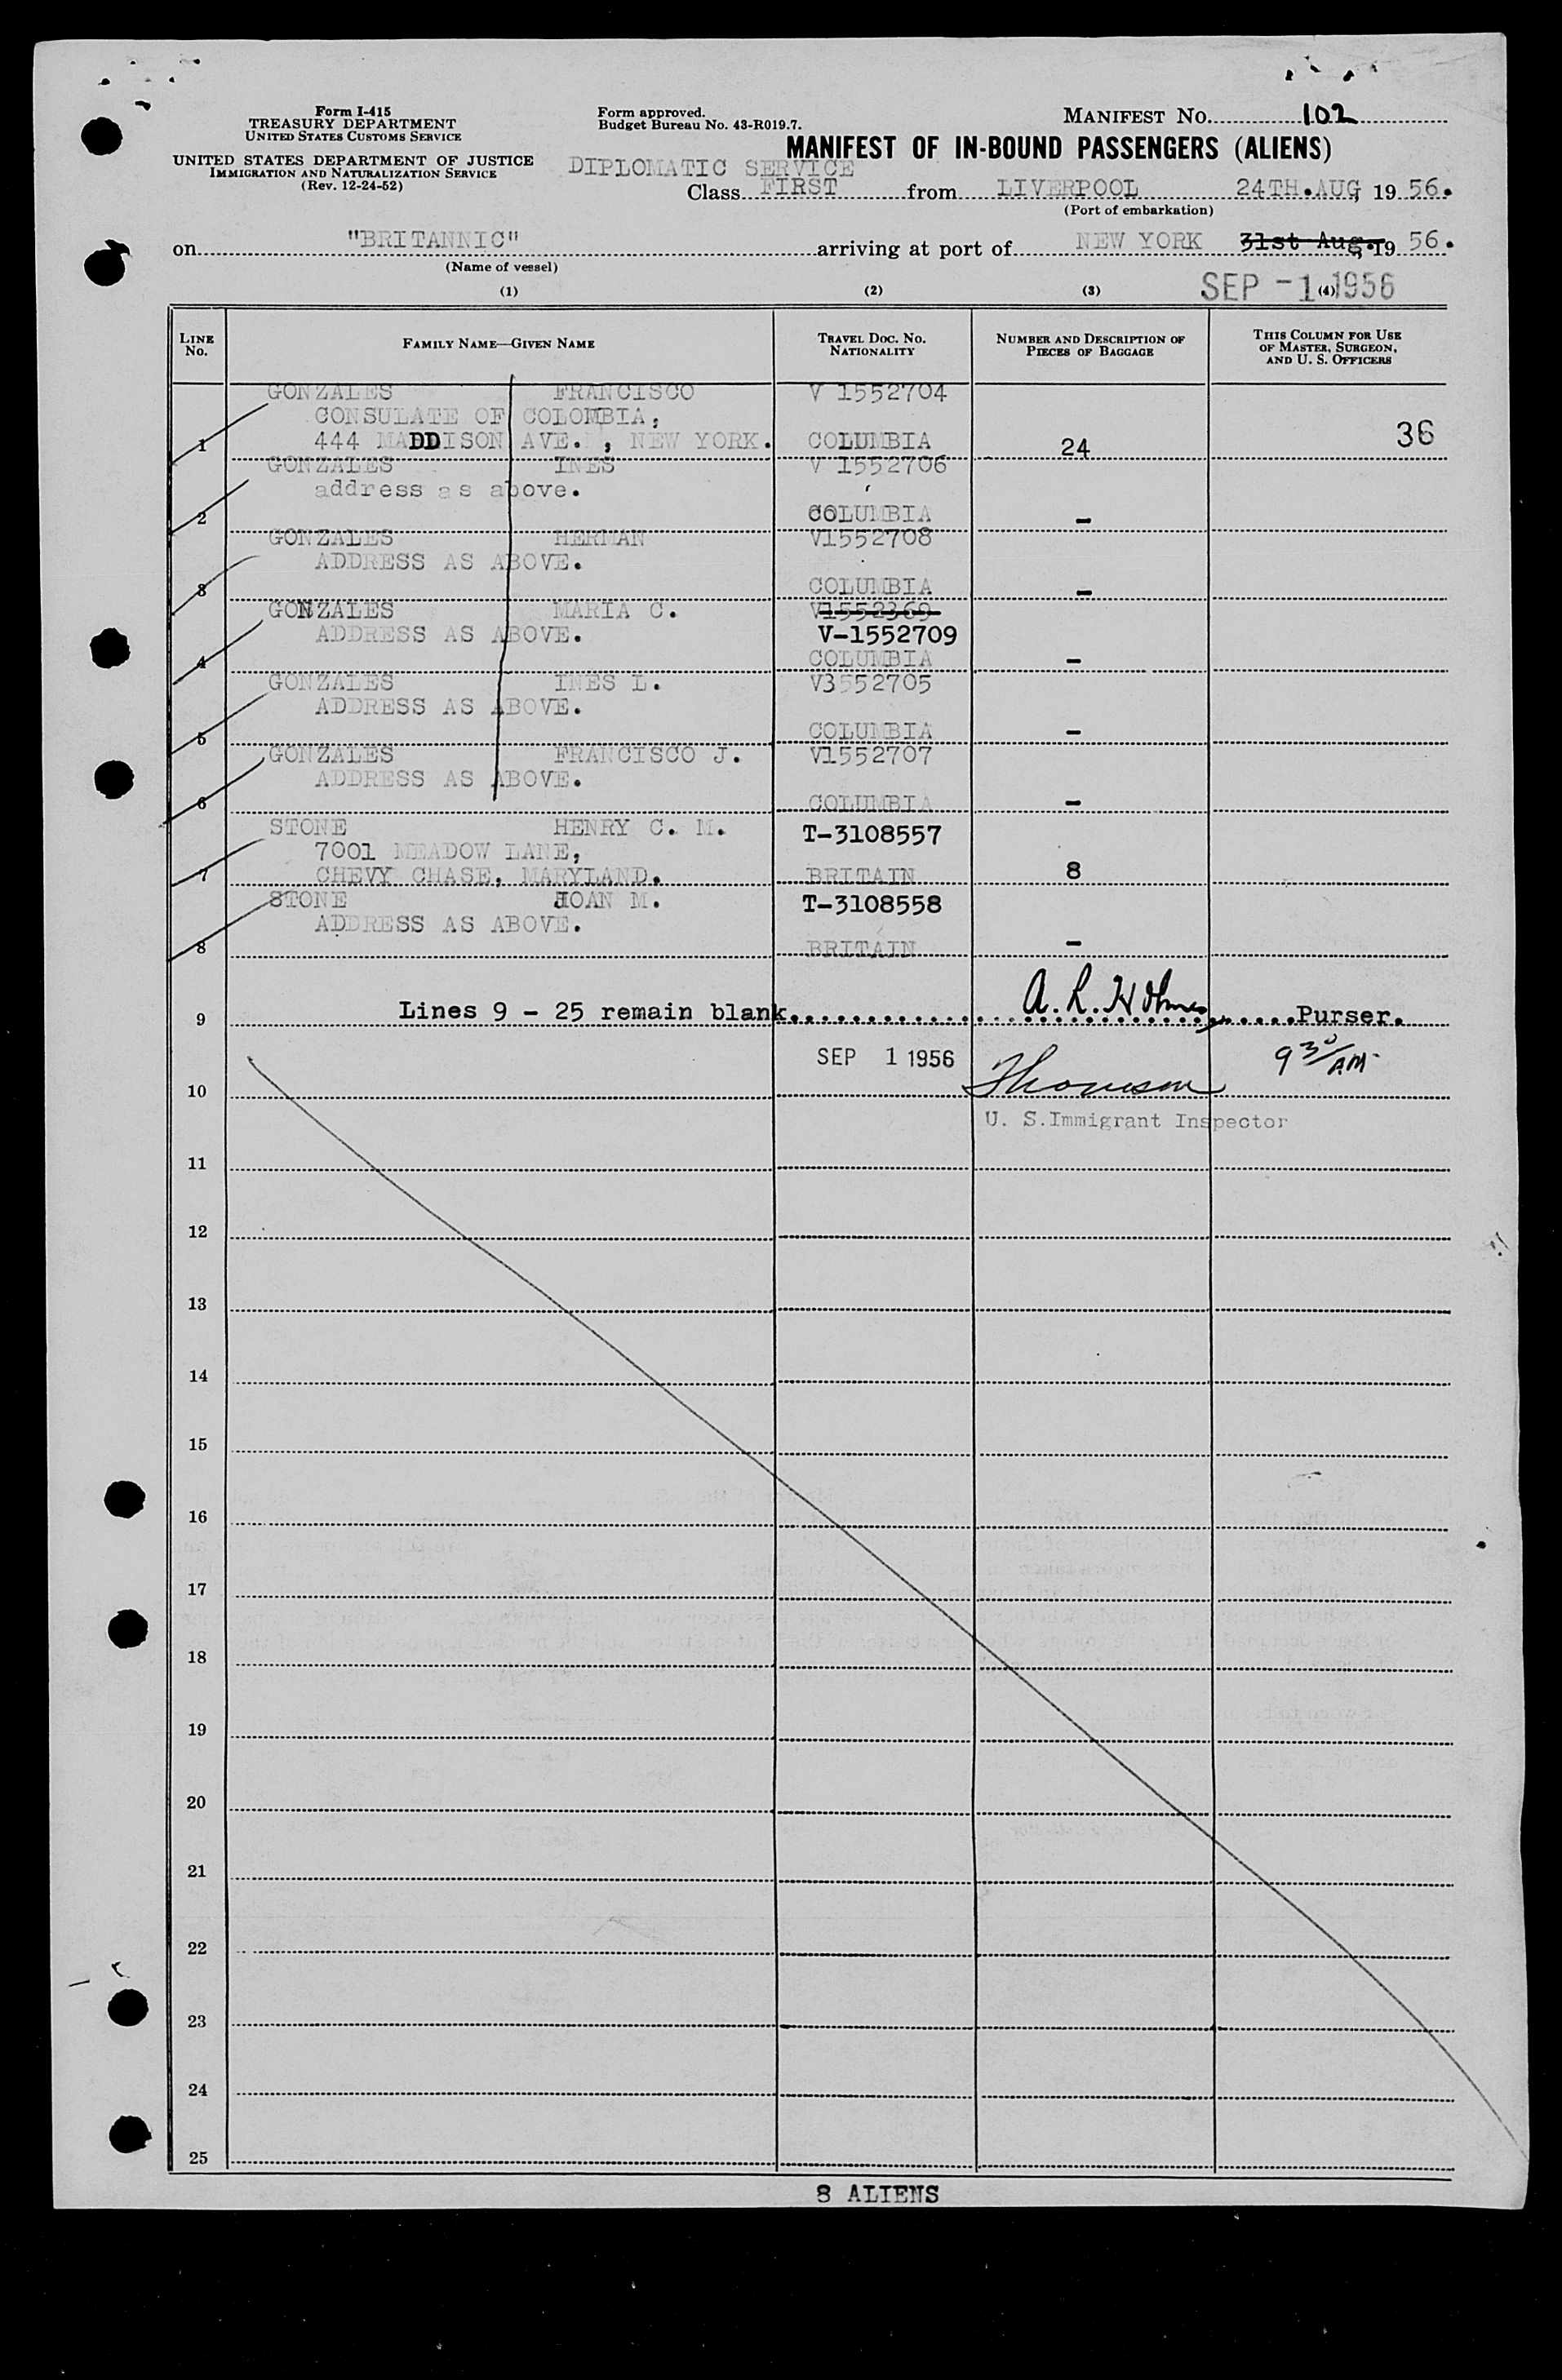 Form I-415
TREASURY DEPARTMENT
UNITED STATES CUSTOMS SERVICE
UNITED STATES DEPARTMENT OF JUSTICE
IMMIGRATION AND NATURALIZATION SERVICE
(Rev. 12-24-52)
Form approved.
Budget Bureau No. 43-R019.7.
MANIFEST NO. 102
MANIFEST OF IN-BOUND PASSENGERS (ALIENS)
DIPLOMATIC SERVICE
Class FIRST from LIVERPOOL 24TH.AUG, 19 56.
(Port of embarkation)
on "BRITANNIC" arriving at port of NEW YORK 31st Aug., 19 56.
(Name of vessel)
SEP - 1 1956
(1) (2) (3) (4)
LINE NO. FAMILY NAME—GIVEN NAME TRAVEL DOC. NO. NATIONALITY NUMBER AND DESCRIPTION OF PIECES OF BAGGAGE THIS COLUMN FOR USE OF MASTER, SURGEON, AND U. S. OFFICERS
GONZALES FRANCISCO V 1552704
CONSULATE OF COLOMBIA,
1 444 MADDISON AVE. , NEW YORK. COLUMBIA 24 36
GONZALES INES V 1552706
address as above.
2 COLUMBIA -
GONZALES HERMAN V1552708
ADDRESS AS ABOVE.
3 COLUMBIA -
GONZALES MARIA C. V1552369
ADDRESS AS ABOVE. V-1552709
4 COLUMBIA -
GONZALES INES L. V3552705
ADDRESS AS ABOVE.
5 COLUMBIA -
GONZALES FRANCISCO J. V1552707
ADDRESS AS ABOVE.
6 COLUMBIA -
STONE HENRY C. M. T-3108557
7001 MEADOW LANE,
7 CHEVY CHASE, MARYLAND. BRITAIN 8
STONE JOAN M. T-3108558
ADDRESS AS ABOVE.
8 BRITAIN -
9 Lines 9 - 25 remain blank. A. R. Holmes Purser.
SEP 1 1956 Thomson 9 30/AM
10
U. S.Immigrant Inspector
11
12
13
14
15
16
17
18
19
20
21
22
23
24
25
8 ALIENS